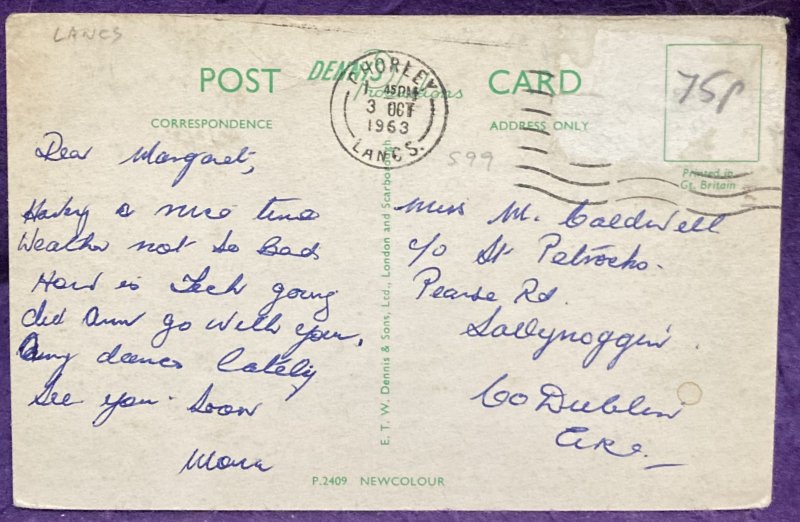 LANCS
POST
DENNIS
Productions
CARD
CORRESPONDENCE
ADDRESS ONLY
CHORLEY
1 45PM
3 OCT
1963
LANCS.
75p
599
Printed in
Gt. Britain
Dear Margaret,
Having a nice time
Weather not so bad
How is Tech going
did Ann go with you,
Any dances lately
See you Soon
Mona
Miss M. Caldwell
c/o St Patrocks.
Pearse Rd.
Sallynoggin
Co Dublin
Eire
E. T. W. Dennis & Sons, Ltd., London and Scarborough
P.2409 NEWCOLOUR